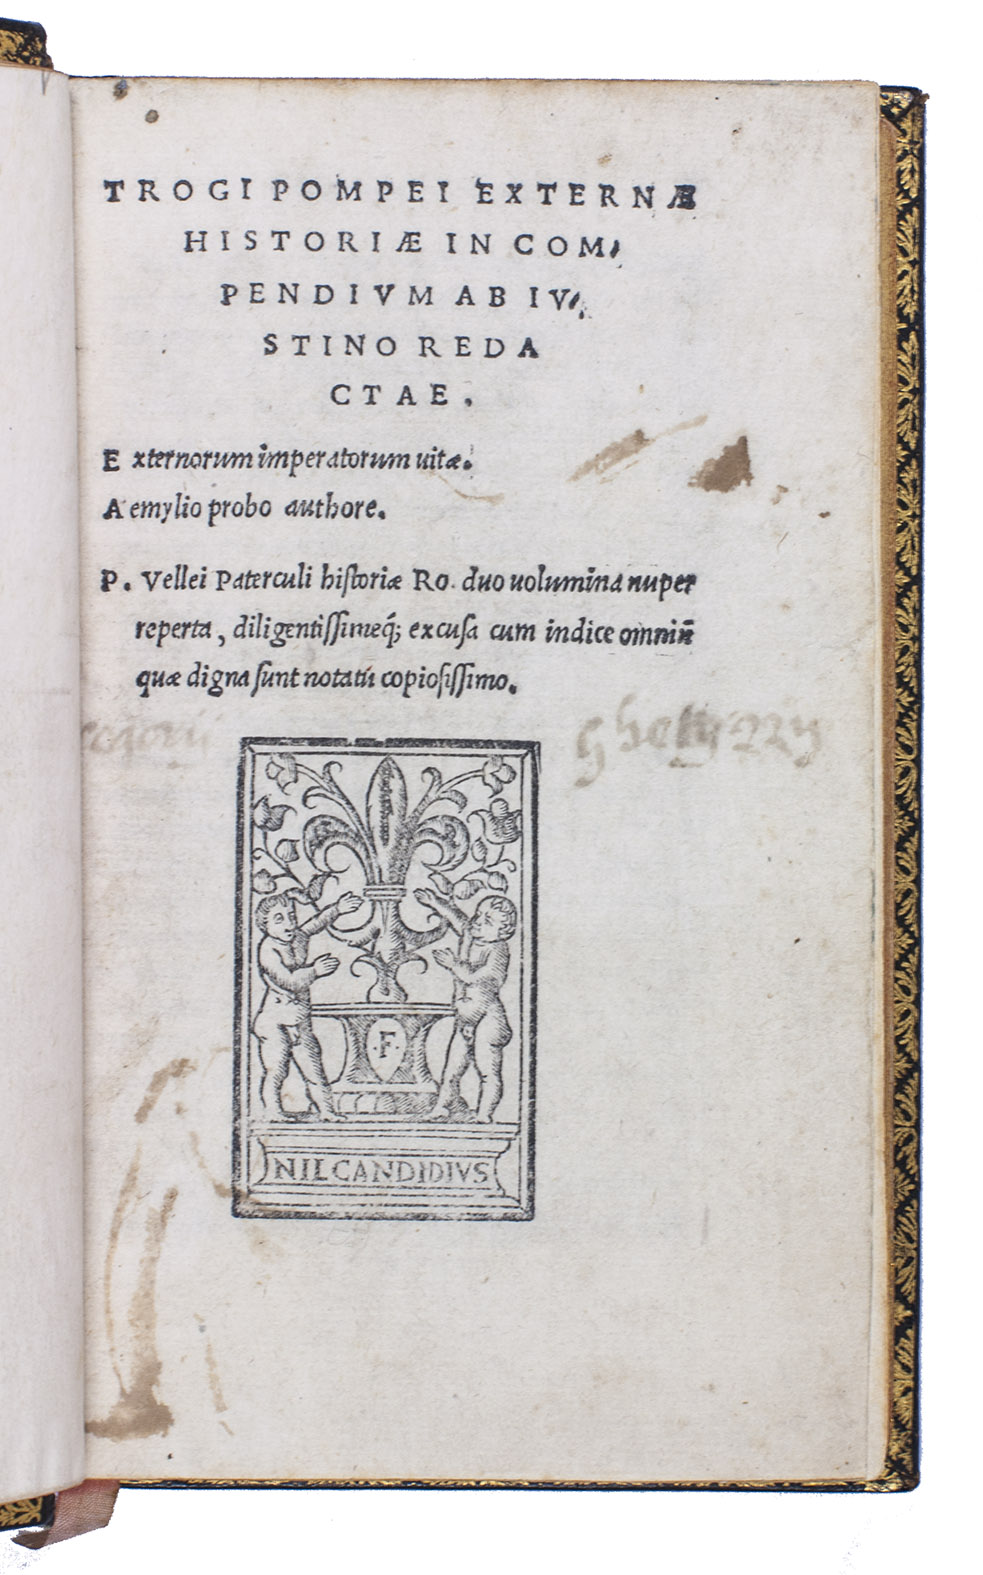 TROGI POMPEI EXTERNÆ
HISTORIÆ IN COM,
PENDIVM AB IV,
STINO REDA
CTAE.
Externorum imperatorum uitæ.
Aemylio probo authore.
P. Vellei Paterculi historiæ Ro. duo uolumina nuper
reperta, diligentissimeq́; excusa cum indice omniũ
quæ digna sunt notatũ copiosissimo.
·F·
NIL CANDIDIVS